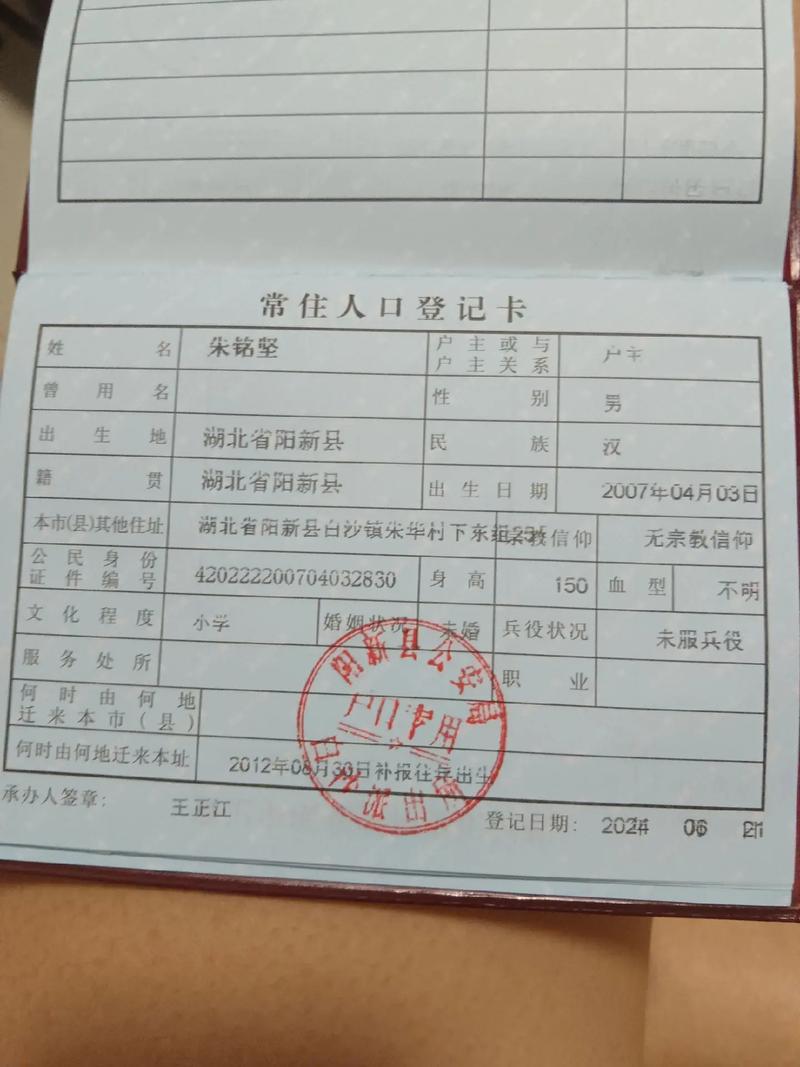 常住人口登记卡
姓名 朱铭坚 户主或与户主关系 户主
曾用名 性别 男
出生地 湖北省阳新县 民族 汉
籍贯 湖北省阳新县 出生日期 2007年04月03日
本市(县)其他住址 湖北省阳新县白沙镇朱华村下东组 宗教信仰 无宗教信仰
公民身份证件编号 420222200704032830 身高 150 血型 不明
文化程度 小学 婚姻状况 未婚 兵役状况 未服兵役
服务处所 职业
何时由何地迁来本市(县)
何时由何地迁来本址 2012年08月30日补报往年出生
阳新县公安局
户口专用
派出所
承办人签章: 王正江 登记日期: 2024 06 21